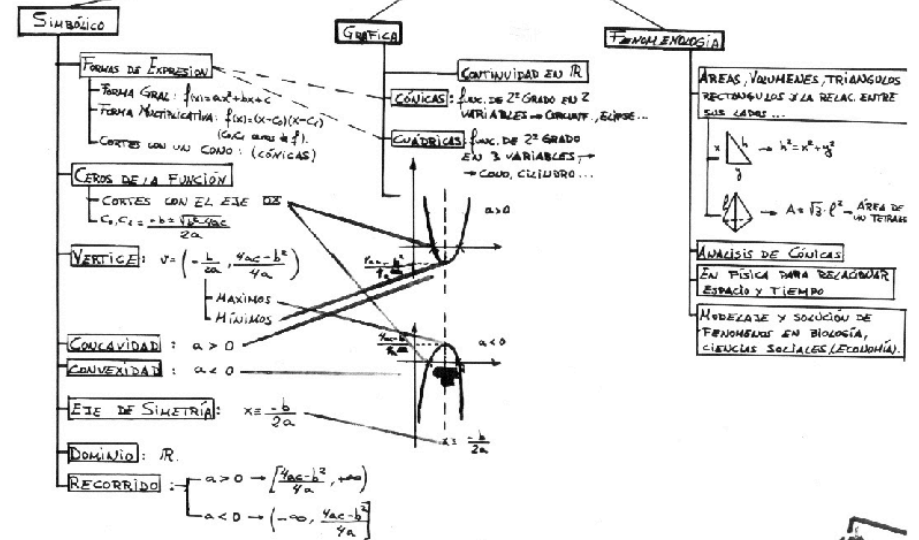 SIMBÓLICO
FORMAS DE EXPRESION
FORMA GRAL: f(x)=ax²+bx+c
FORMA MULTIPLICATIVA: f(x)=(x-C₀)(x-C₁)
(C₀,C₁ ceros de f).
CORTES CON UN CONO: (CÓNICAS)
CEROS DE LA FUNCIÓN
CORTES CON EL EJE OX
C₀, C₁ = -b ± √b²-4ac / 2a
VERTICE: V = (-b/2a, 4ac-b²/4a)
MAXIMOS
MÍNIMOS
CONCAVIDAD : a > 0
CONVEXIDAD : a < 0
EJE DE SIMETRÍA: x = -b/2a
DOMINIO: ℝ.
RECORRIDO :
a > 0 → [4ac-b²/4a, +∞)
a < 0 → (-∞, 4ac-b²/4a]
GRAFICA
CONTINUIDAD EN ℝ
CÓNICAS: func. DE 2º GRADO EN 2
VARIABLES → CIRCUNF., ELIPSE...
CUÁDRICAS: func. DE 2º GRADO
EN 3 VARIABLES, →
→ CONO, CILINDRO...
a>0
4ac-b²
a<0
4ac-b²
x = -b/2a
FENOMENOLOGÍA
AREAS, VOLUMENES, TRIANGULOS
RECTANGULOS Y LA RELAC. ENTRE
SUS LADOS...
x h → h² = x² + y²
y
l → A = √3 · l² → ÁREA DE
UN TETRAE
ANALISIS DE CÓNICAS
EN FÍSICA PARA RELACIONAR
ESPACIO Y TIEMPO
MODELAJE Y SOLUCIÓN DE
FENOMENOS EN BIOLOGÍA,
CIENCIAS SOCIALES (ECONOMÍA).